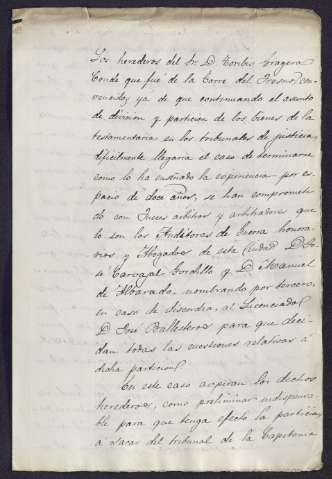 Los herederos del Sr. D. Toribio Gragera
Conde que fué de la Torre del Fresno, con-
vencidos ya de que continuando el asunto
de division y particion de los bienes de la
testamentaria en los tribunales de justicia,
dificilmente llegaria el caso de terminarse
como lo ha enseñado la esperiencia por es-
pacio de doce años, se han comprometi-
do con Jueces arbitros y arbitradores que
lo son los Auditores de Guerra honora-
rios y Abogados de esta Ciudad D. Jo-
sé Carvajal Gordillo y D. Manuel
de Alvarado, nombrando por tercero,
en caso de discordia, al Licenciado
D. José Ballesteros para que deci-
dan todas las cuestiones relativas á
dicha particion.
En este caso aspiran los dichos
herederos, como preliminar indispensa-
ble para que tenga efecto la particion,
a sacar del tribunal de la Capitania